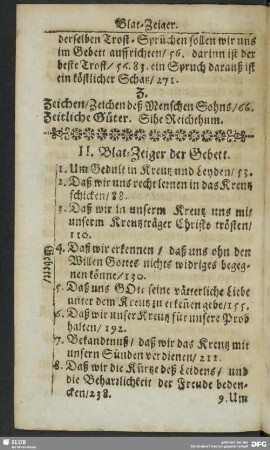 Blat-Zeiger.
derselben Trost-Sprüchen sollen wir uns
im Gebett auffrichten/56. darinn ist der
beste Trost/56.83. ein Spruch darauß ist
ein köstlicher Schatz/271.
Z.
Zeichen/Zeichen deß Menschen Sohns/66.
Zeitliche Güter. Sihe Reichthum.
II. Blat-Zeiger der Gebett.
1. Um Gedult in Kreutz und Leyden/53.
2. Daß wir uns recht lernen in das Kreutz
schicken/88.
3. Daß wir in unserm Kreutz uns mit
unserm Kreutzträger Christo trösten/
110.
4. Daß wir erkennen / daß uns ohn den
Willen Gottes nichts widriges begeg-
nen könne/130.
5. Daß uns GOtt seine vätterliche Liebe
unter dem Kreutz zu erkeñen gebe/155.
6. Daß wir unser Kreutz für unsere Prob
halten/192.
7. Bekandtnuß/ daß wir das Kreutz mit
unsern Sünden verdienen/212.
8. Daß wir die Kürtze deß Leidens/ und
die Beharrlichkeit der Freude beden-
cken/238.
9. Um
Geben/
SLUB